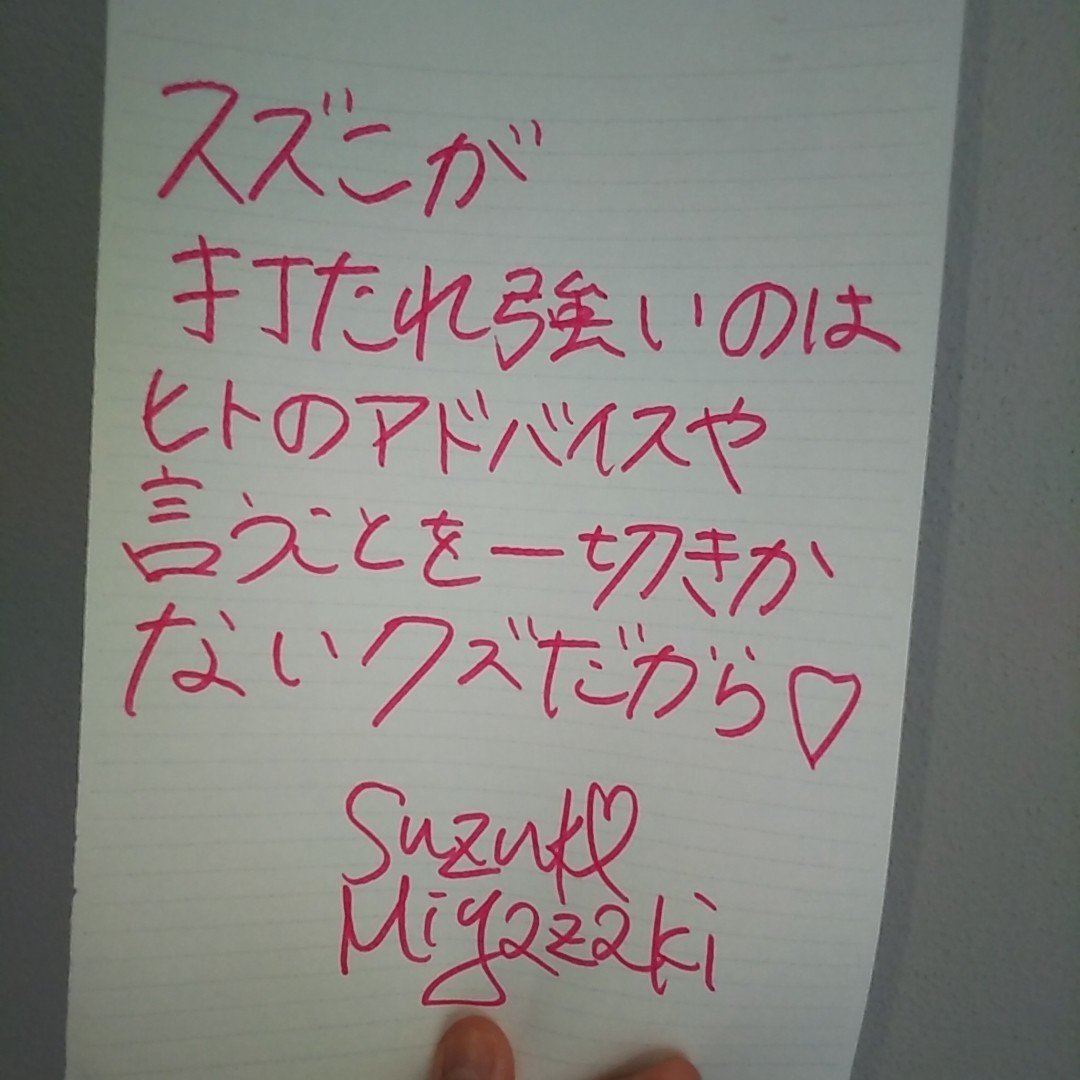 スズこが
打たれ強いのは
ヒトのアドバイスや
言うことを一切きか
ないクズだから♡
Suzuk♡
Miyazaki